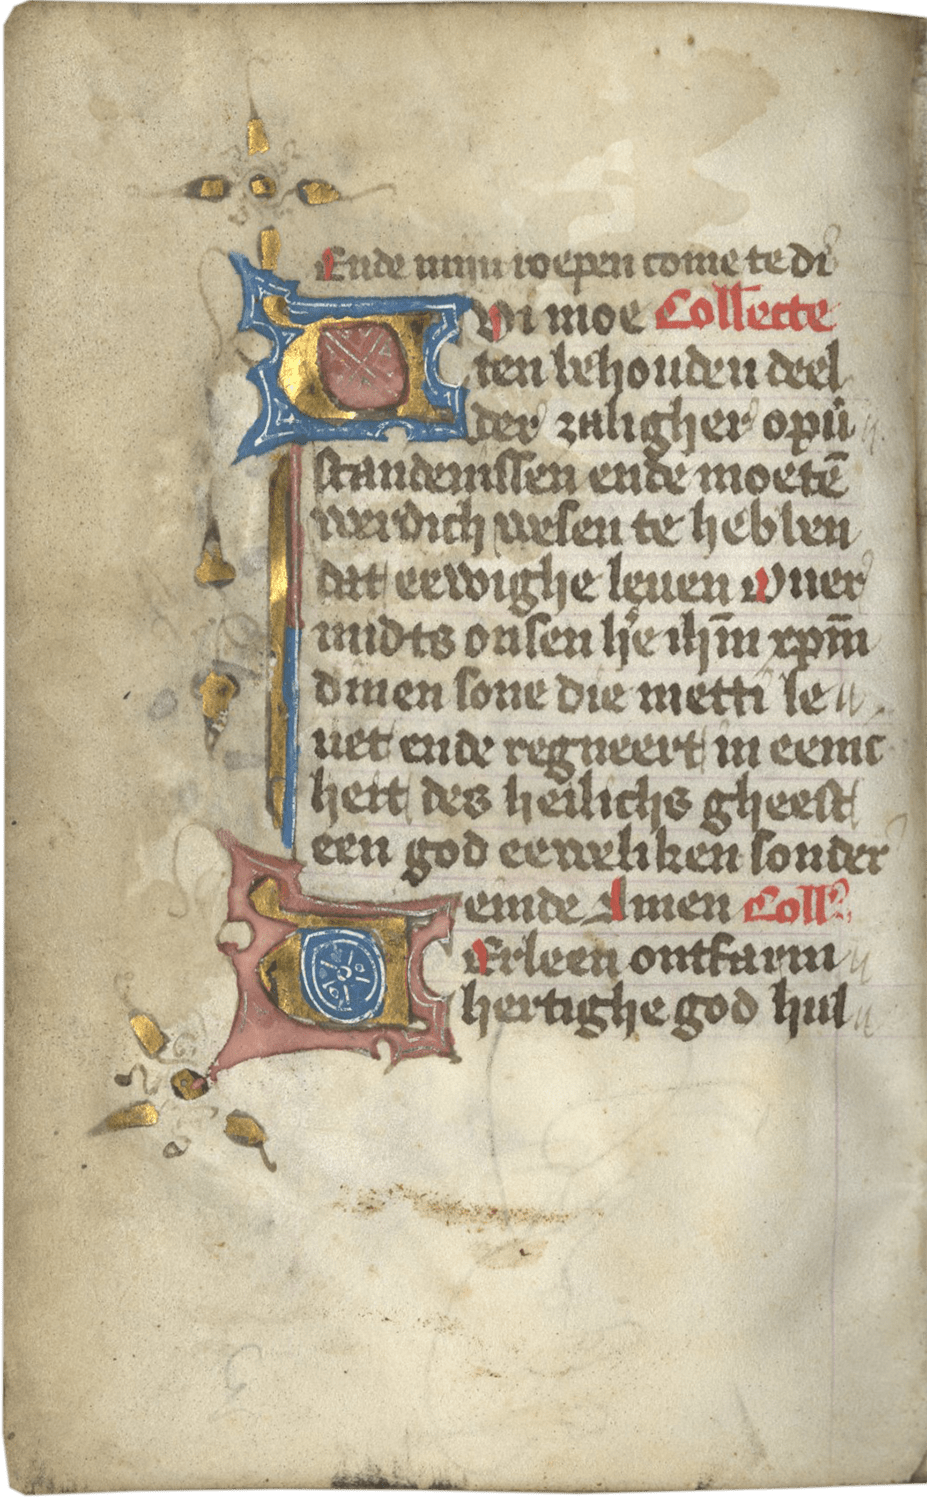 Ende mijn roepen come te di
Wi moe Collecte
ten behouden deel
der zaligher opu̅
standenissen ende moete̅
werdich wesen te hebben
dat eewighe leuen Ouer
midts onsen he̅e ihm̅ xpm̅
dinen sone die metti le
uet ende regneert in eenic
heit des heilichs gheest
een god eeweliken sonder
einde Amen Coll̅
Erleen ontfarm
hertighe god hul